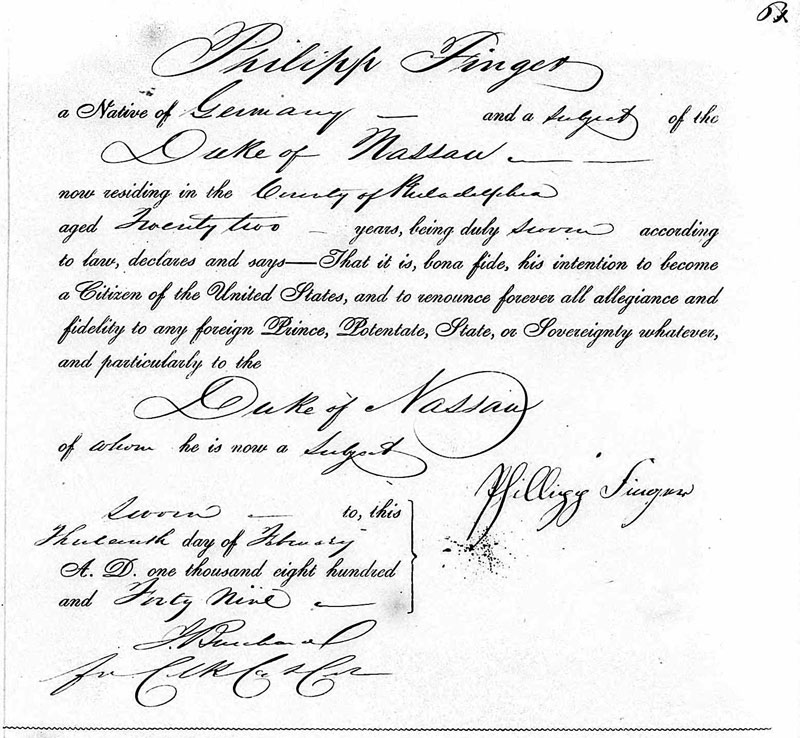 Philipp Finger
a Native of Germany — and a subject of the
Duke of Nassau — —
now residing in the County of Philadelphia
aged Twenty two — years, being duly sworn according
to law, declares and says—That it is, bona fide, his intention to become
a Citizen of the United States, and to renounce forever all allegiance and
fidelity to any foreign Prince, Potentate, State, or Sovereignty whatever,
and particularly to the
Duke of Nassau
of whom he is now a Subject
Phillipp Finger
Sworn — to, this
Thirteenth day of February
A. D. one thousand eight hundred
and Forty Nine —
for Clk